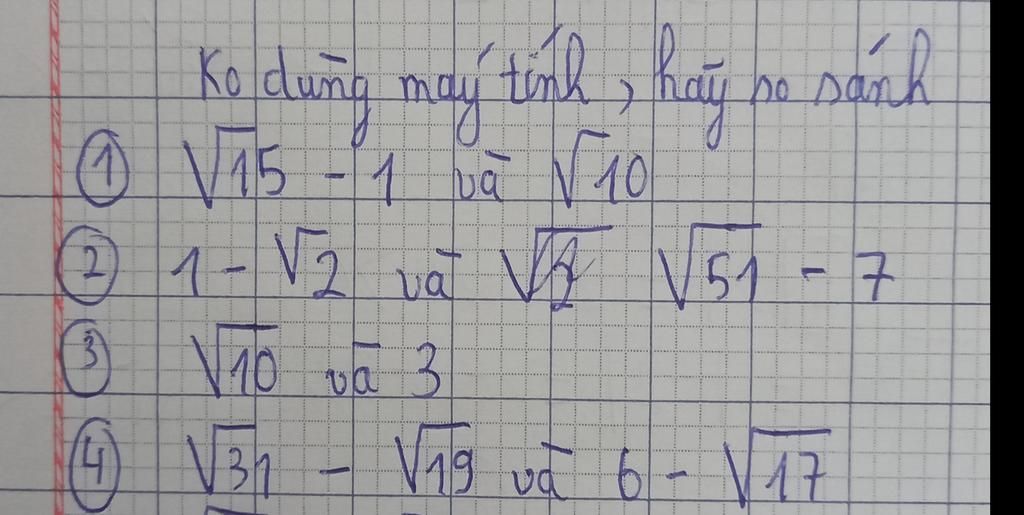 Ko dùng máy tính, hãy so sánh
① √15 - 1 và √10
② 1 - √2 và √51 - 7
③ √10 và 3
④ √31 - √19 và 6 - √17